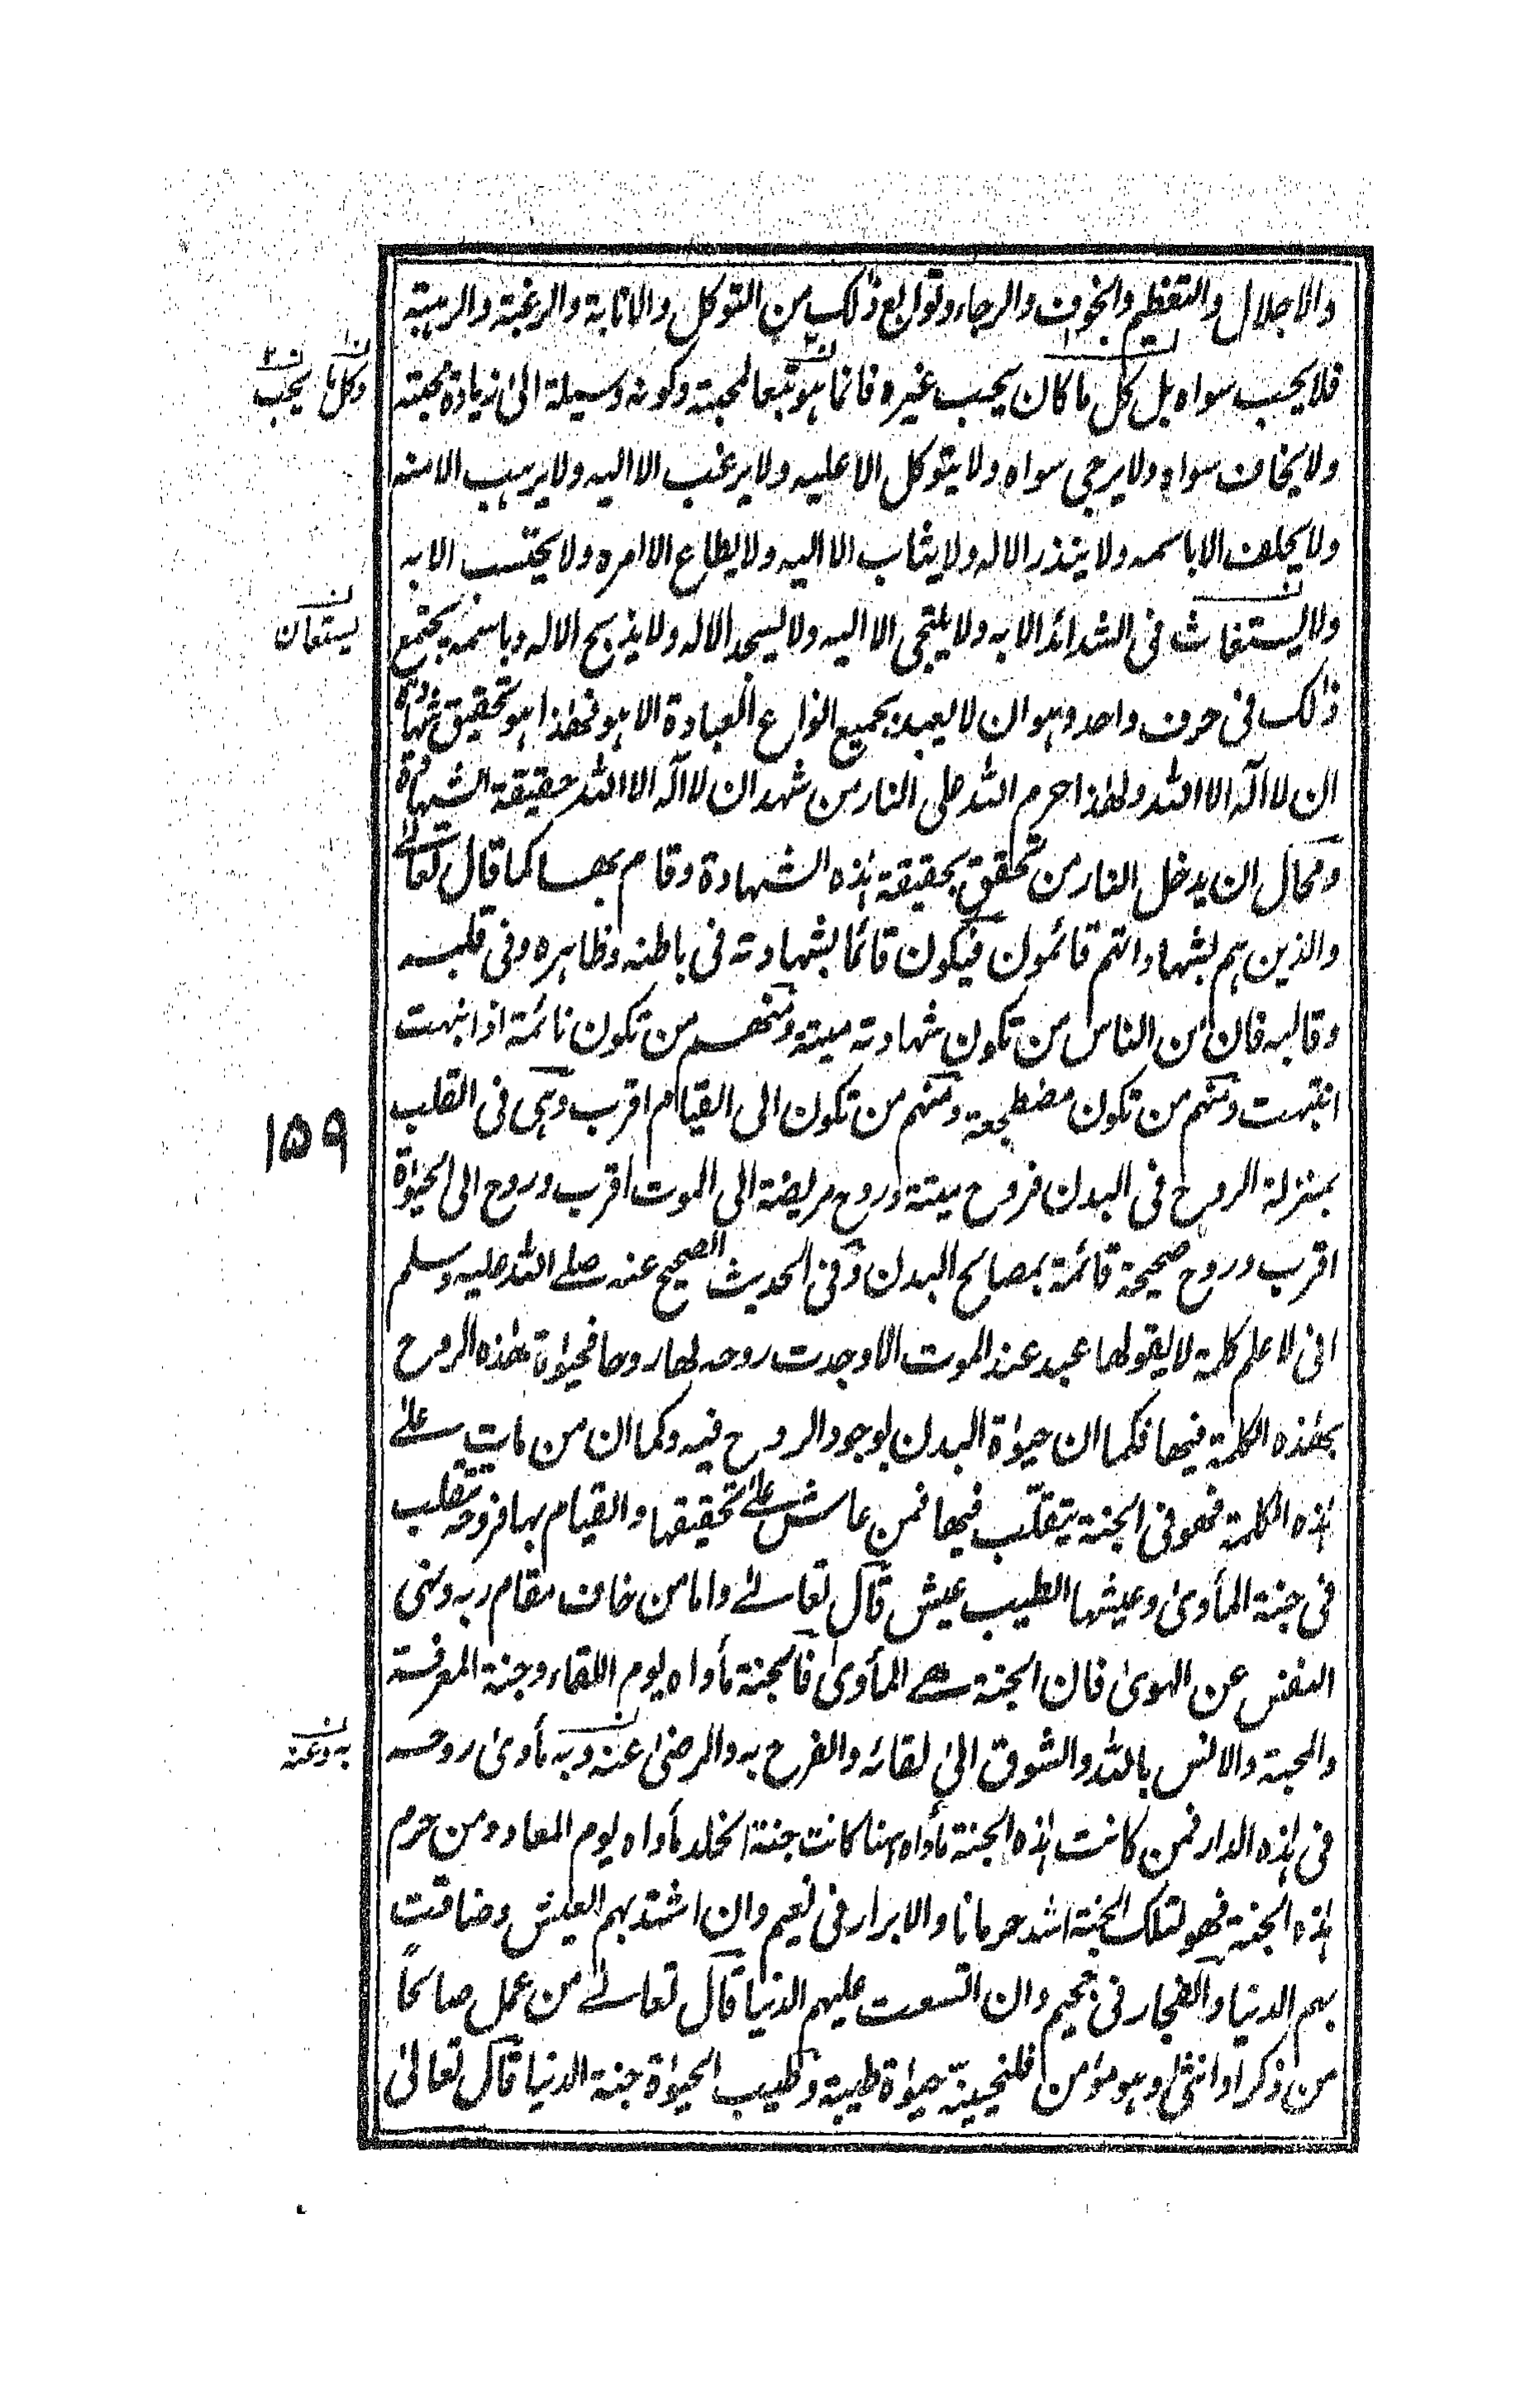 والاجلال والتعظيم والخوف والرجاء وتوابع ذٰلك من التوكل والانابة والرغبة والرهبة
فلا يحب سواه بل كل ما كان يحب غيره فانما هو تبعا لمحبته وكونه وسيلة الىٰ زيادة محبته
وكل ما يحب
ولا يخاف سواه ولا يرجى سواه ولا يتوكل الا عليه ولا يرغب الا اليه ولا يرهب الا منه
ولا يحلف الا باسمه ولا ينذر الا له ولا يتاب الا اليه ولا يطاع الا امره ولا يحتسب الا به
ولا يستغاث فى الشدائد الا به ولا يلتجى الا اليه ولا يسجد الا له ولا يذبح الا له وباسمه يجتمع
يستعان
ذٰلك فى حرف واحد وهو ان لا يعبد بجميع انواع العبادة الا هو فهٰذا هو تحقيق شهادة
ان لا اله الا الله ولهٰذا حرم الله على النار من شهد ان لا اله الا الله حقيقة الشهادة
ومحال ان يدخل النار من تحقق بحقيقة هٰذه الشهادة وقام بها كما قال تعالىٰ
والذين هم بشهاداتهم قائمون فيكون قائما بشهادته فى باطنه وظاهره وفى قلبه
وقالبه فان من الناس من تكون شهادته ميتة ومنهم من تكون نائمة اذا نبهت
انتبهت ومنهم من تكون مضطجعة ومنهم من تكون الى القيام اقرب وهى فى القلب
١٥٩
بمنزلة الروح فى البدن فروح ميتة وروح مريضة الى الموت اقرب وروح الى الحيوٰة
اقرب وروح صحيحة قائمة بمصالح البدن وفى الحديث الصحيح عنه صلے الله عليه وسلم
انى لا علم كلمة لا يقولها عبد عند الموت الا وجدت روحه لها روحا فحيوٰة هٰذه الروح
بهٰذه الكلمة فيها فكما ان حيوٰة البدن بوجود الروح فيه وكما ان من مات علےٰ
هٰذه الكلمة فهو فى الجنة يتقلّب فيها فمن عاش علےٰ تحقيقها والقيام بها فروحه تتقلب
فى جنة المأوىٰ وعيشها اطيب عيش قال تعالےٰ واما من خاف مقام ربه ونهى
النفس عن الهوىٰ فان الجنة هے المأوىٰ فالجنة مأواه يوم اللقاء وجنة المعرفة
والمحبة والانس بالله والشوق الىٰ لقائه والفرح به والرضىٰ عنه وبه مأوىٰ روحه
به وعنه
فى هٰذه الدار فمن كانت هٰذه الجنة مأواه ههنا كانت جنة الخلد مأواه يوم المعاد ومن حرم
هٰذه الجنة فهو لتلك الجنة اشد حرمانا والابرار فى نعيم وان اشتد بهم العيش وضاقت
بهم الدنيا والفجار فى جحيم وان اتسعت عليهم الدنيا قال تعالےٰ من عمل صالحاً
من ذكر او انثىٰ وهو مؤمن فلنحيينّه حيوٰة طيبة وطيب الحيوٰة جنة الدنيا قال تعالىٰ